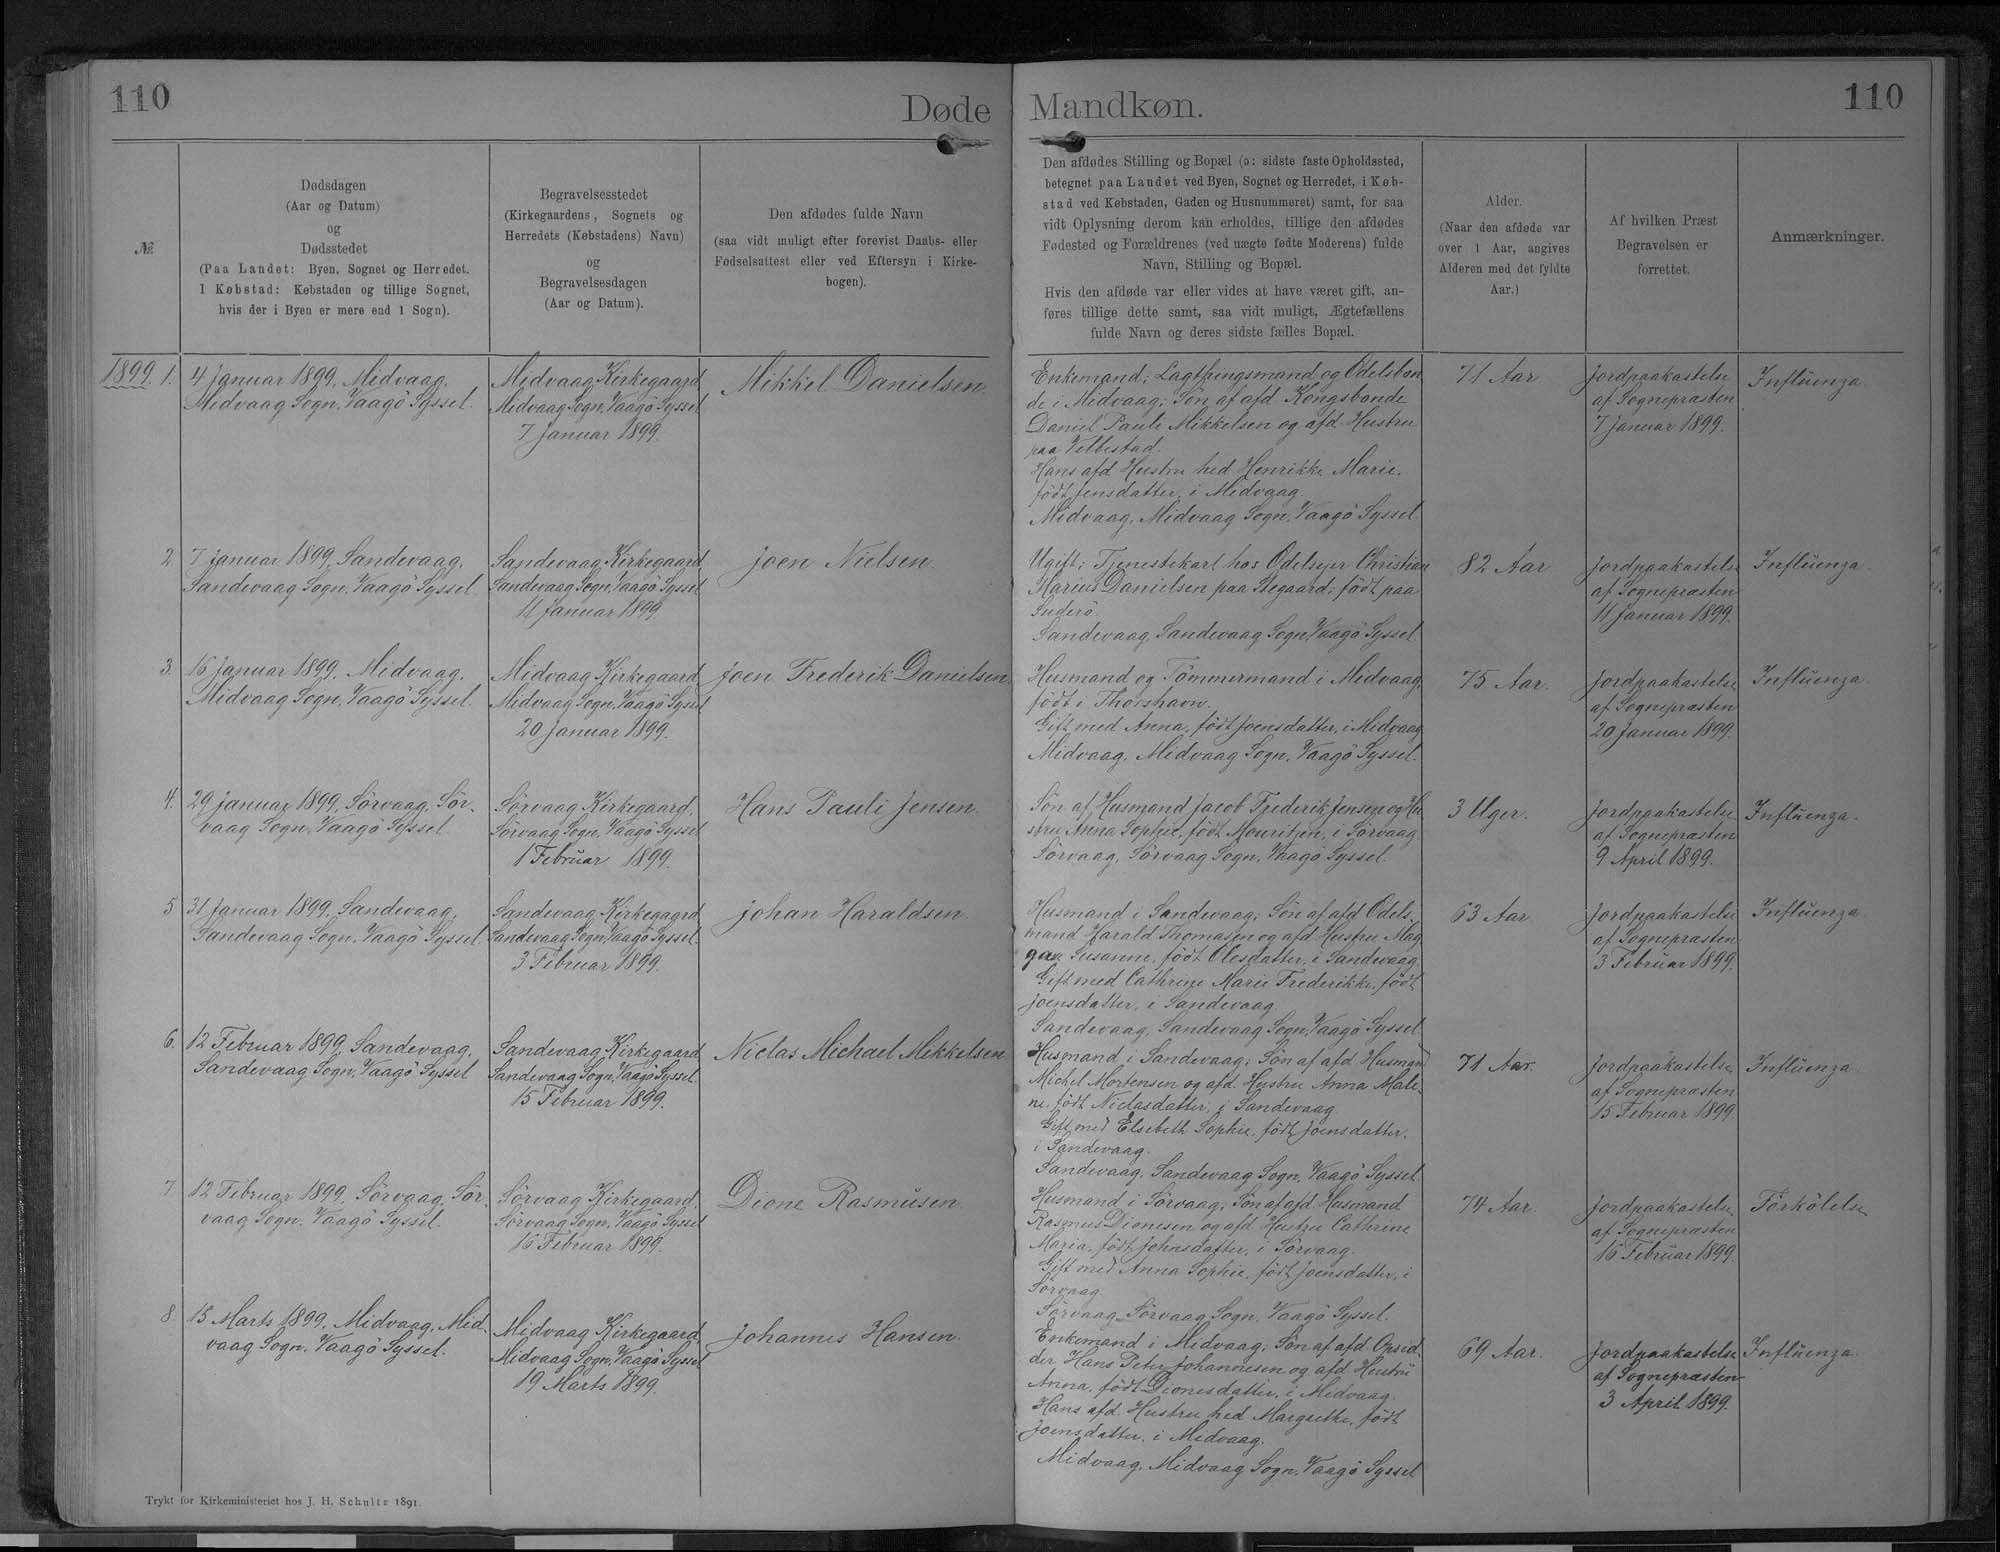 110
Døde
Mandkøn.
110
№
Dødsdagen
(Aar og Datum)
og
Dødsstedet
(Paa Landet: Byen, Sognet og Herredet.
I Købstad: Købstaden og tillige Sognet,
hvis der i Byen er mere end 1 Sogn).
Begravelsesstedet
(Kirkegaardens, Sognets og
Herredets (Købstadens) Navn)
og
Begravelsesdagen
(Aar og Datum).
Den afdødes fulde Navn
(saa vidt muligt efter forevist Daabs- eller
Fødselsattest eller ved Eftersyn i Kirke-
bogen).
Den afdødes Stilling og Bopæl (ɔ: sidste faste Opholdssted,
betegnet paa Landet ved Byen, Sognet og Herredet, i Køb-
stad ved Købstaden, Gaden og Husnummeret) samt, for saa
vidt Oplysning derom kan erholdes, tillige den afdødes
Fødested og Forældrenes (ved uægte fødte Moderens) fulde
Navn, Stilling og Bopæl.
Hvis den afdøde var eller vides at have været gift, an-
føres tillige dette samt, saa vidt muligt, Ægtefællens
fulde Navn og deres sidste fælles Bopæl.
Alder.
(Naar den afdøde var
over 1 Aar, angives
Alderen med det fyldte
Aar.)
Af hvilken Præst
Begravelsen er
forrettet.
Anmærkninger.
1899. 1.
4 Januar 1899, Midvaag,
Midvaag Sogn, Vaagö Syssel.
Midvaag Kirkegaard
Midvaag Sogn, Vaagö Syssel
7 Januar 1899.
Mikkel Danielsen.
Enkemand; Lagthingsmand og Odelsbon
de i Midvaag; Søn af afd Kongsbonde
Daniel Pauli Mikkelsen og afd. Hustru
paa Velbestad.
Hans afd Hustru hed Henrikke Marie,
födt Jensdatter, i Midvaag
Midvaag, Midvaag Sogn, Vaagö Syssel
71 Aar
Jordpaakastelse
af Sognepræsten
7 Januar 1899.
Influenza
2
7 Januar 1899, Sandevaag,
Sandevaag Sogn, Vaagö Syssel
Sandevaag Kirkegaard
Sandevaag Sogn, Vaagö Syssel
11 Januar 1899.
Joen Nielsen.
Ugift; Tjenestekarl hos Odelsejer Christian
Marius Danielsen paa Stegaard; födt paa
Suderö
Sandevaag, Sandevaag Sogn, Vaagö Syssel
82 Aar
Jordpaakastelse
af Sognepræsten
11 Januar 1899.
Influenza.
3.
16 Januar 1899. Midvaag.
Midvaag Sogn, Vaagö Syssel.
Midvaag Kirkegaard
Midvaag Sogn, Vaagö Syssel
20 Januar 1899.
Joen Frederik Danielsen
Husmand og Tömmermand i Midvaag,
födt i Thorshavn.
Gift med Anna, födt Joensdatter, i Midvaag
Midvaag, Midvaag Sogn, Vaagö Syssel.
75 Aar.
Jordpaakastelse
af Sognepræsten
20 Januar 1899.
Influenza.
4.
29 Januar 1899, Sörvaag, Sör-
vaag Sogn, Vaagö Syssel
Sörvaag Kirkegaard,
Sörvaag Sogn, Vaagö Syssel
1 Februar 1899.
Hans Pauli Jensen.
Søn af Husmand Jacob Frederik Jensen og Hu-
stru Anna Sophie, födt Mouritzen, i Sörvaag
Sörvaag, Sörvaag Sogn, Vaagö Syssel.
3 Uger.
Jordpaakastelse
af Sognepræsten
9 April 1899.
Influenza.
5
31 Januar 1899, Sandevaag,
Sandevaag Sogn, Vaagö Syssel
Sandevaag Kirkegaard
Sandevaag Sogn, Vaagö Syssel.
3 Februar 1899.
Johan Haraldsen
Husmand i Sandevaag; Søn af afd Odels-
mand Harald Thomasen og afd Hustru Mag
gaa Susanne, födt Olesdatter, i Sandevaag
Gift med Cathrine Marie Frederikke, födt
Joensdatter, i Sandevaag
Sandevaag, Sandevaag Sogn, Vaagö Syssel
63 Aar
Jordpaakastelse
af Sognepræsten
3 Februar 1899.
Influenza
6.
12 Februar 1899, Sandevaag,
Sandevaag Sogn, Vaagö Syssel
Sandevaag Kirkegaard
Sandevaag Sogn, Vaagö Syssel.
15 Februar 1899.
Niclas Michael Mikkelsen
Husmand i Sandevaag; Søn af afd Husman
Michel Mortensen og afd. Hustru Anna Male-
ne, födt Niclasdatter, i Sandevaag
Gift med Elsebeth Sophie, födt Joensdatter,
i Sandevaag.
Sandevaag, Sandevaag Sogn, Vaagö Syssel
71 Aar.
Jordpaakastelse
af Sognepræsten
15 Februar 1899.
Influenza
7
12 Februar 1899, Sörvaag, Sör
vaag Sogn, Vaagö Syssel.
Sörvaag Kirkegaard,
Sörvaag Sogn, Vaagö Syssel
16 Februar 1899.
Dione Rasmusen
Husmand i Sörvaag; Søn af afd Husmand
Rasmus Dionesen og afd Hustru Cathrine
Maria, födt Johnsdatter, i Sörvaag.
Gift med Anna Sophie, födt Joensdatter, i
Sörvaag
Sörvaag, Sörvaag Sogn, Vaagö Syssel.
74 Aar.
Jordpaakastelse
af Sognepræsten
16 Februar 1899.
Forkölelse
8
15 Marts 1899, Midvaag, Mid-
vaag Sogn, Vaagö Syssel.
Midvaag Kirkegaard
Midvaag Sogn, Vaagö Syssel
19 Marts 1899.
Johannes Hansen.
Enkemand i Midvaag; Søn af afd Opsid-
der Hans Peter Johannesen og afd Hustru
Anna, födt Dionesdatter, i Midvaag.
Hans afd. Hustru hed Margrethe, födt
Joensdatter, i Midvaag.
Midvaag, Midvaag Sogn, Vaagö Syssel
69 Aar.
Jordpaakastelse
af Sognepræsten
3 April 1899.
Influenza.
Trykt for Kirkeministeriet hos J. H. Schultz 1891.